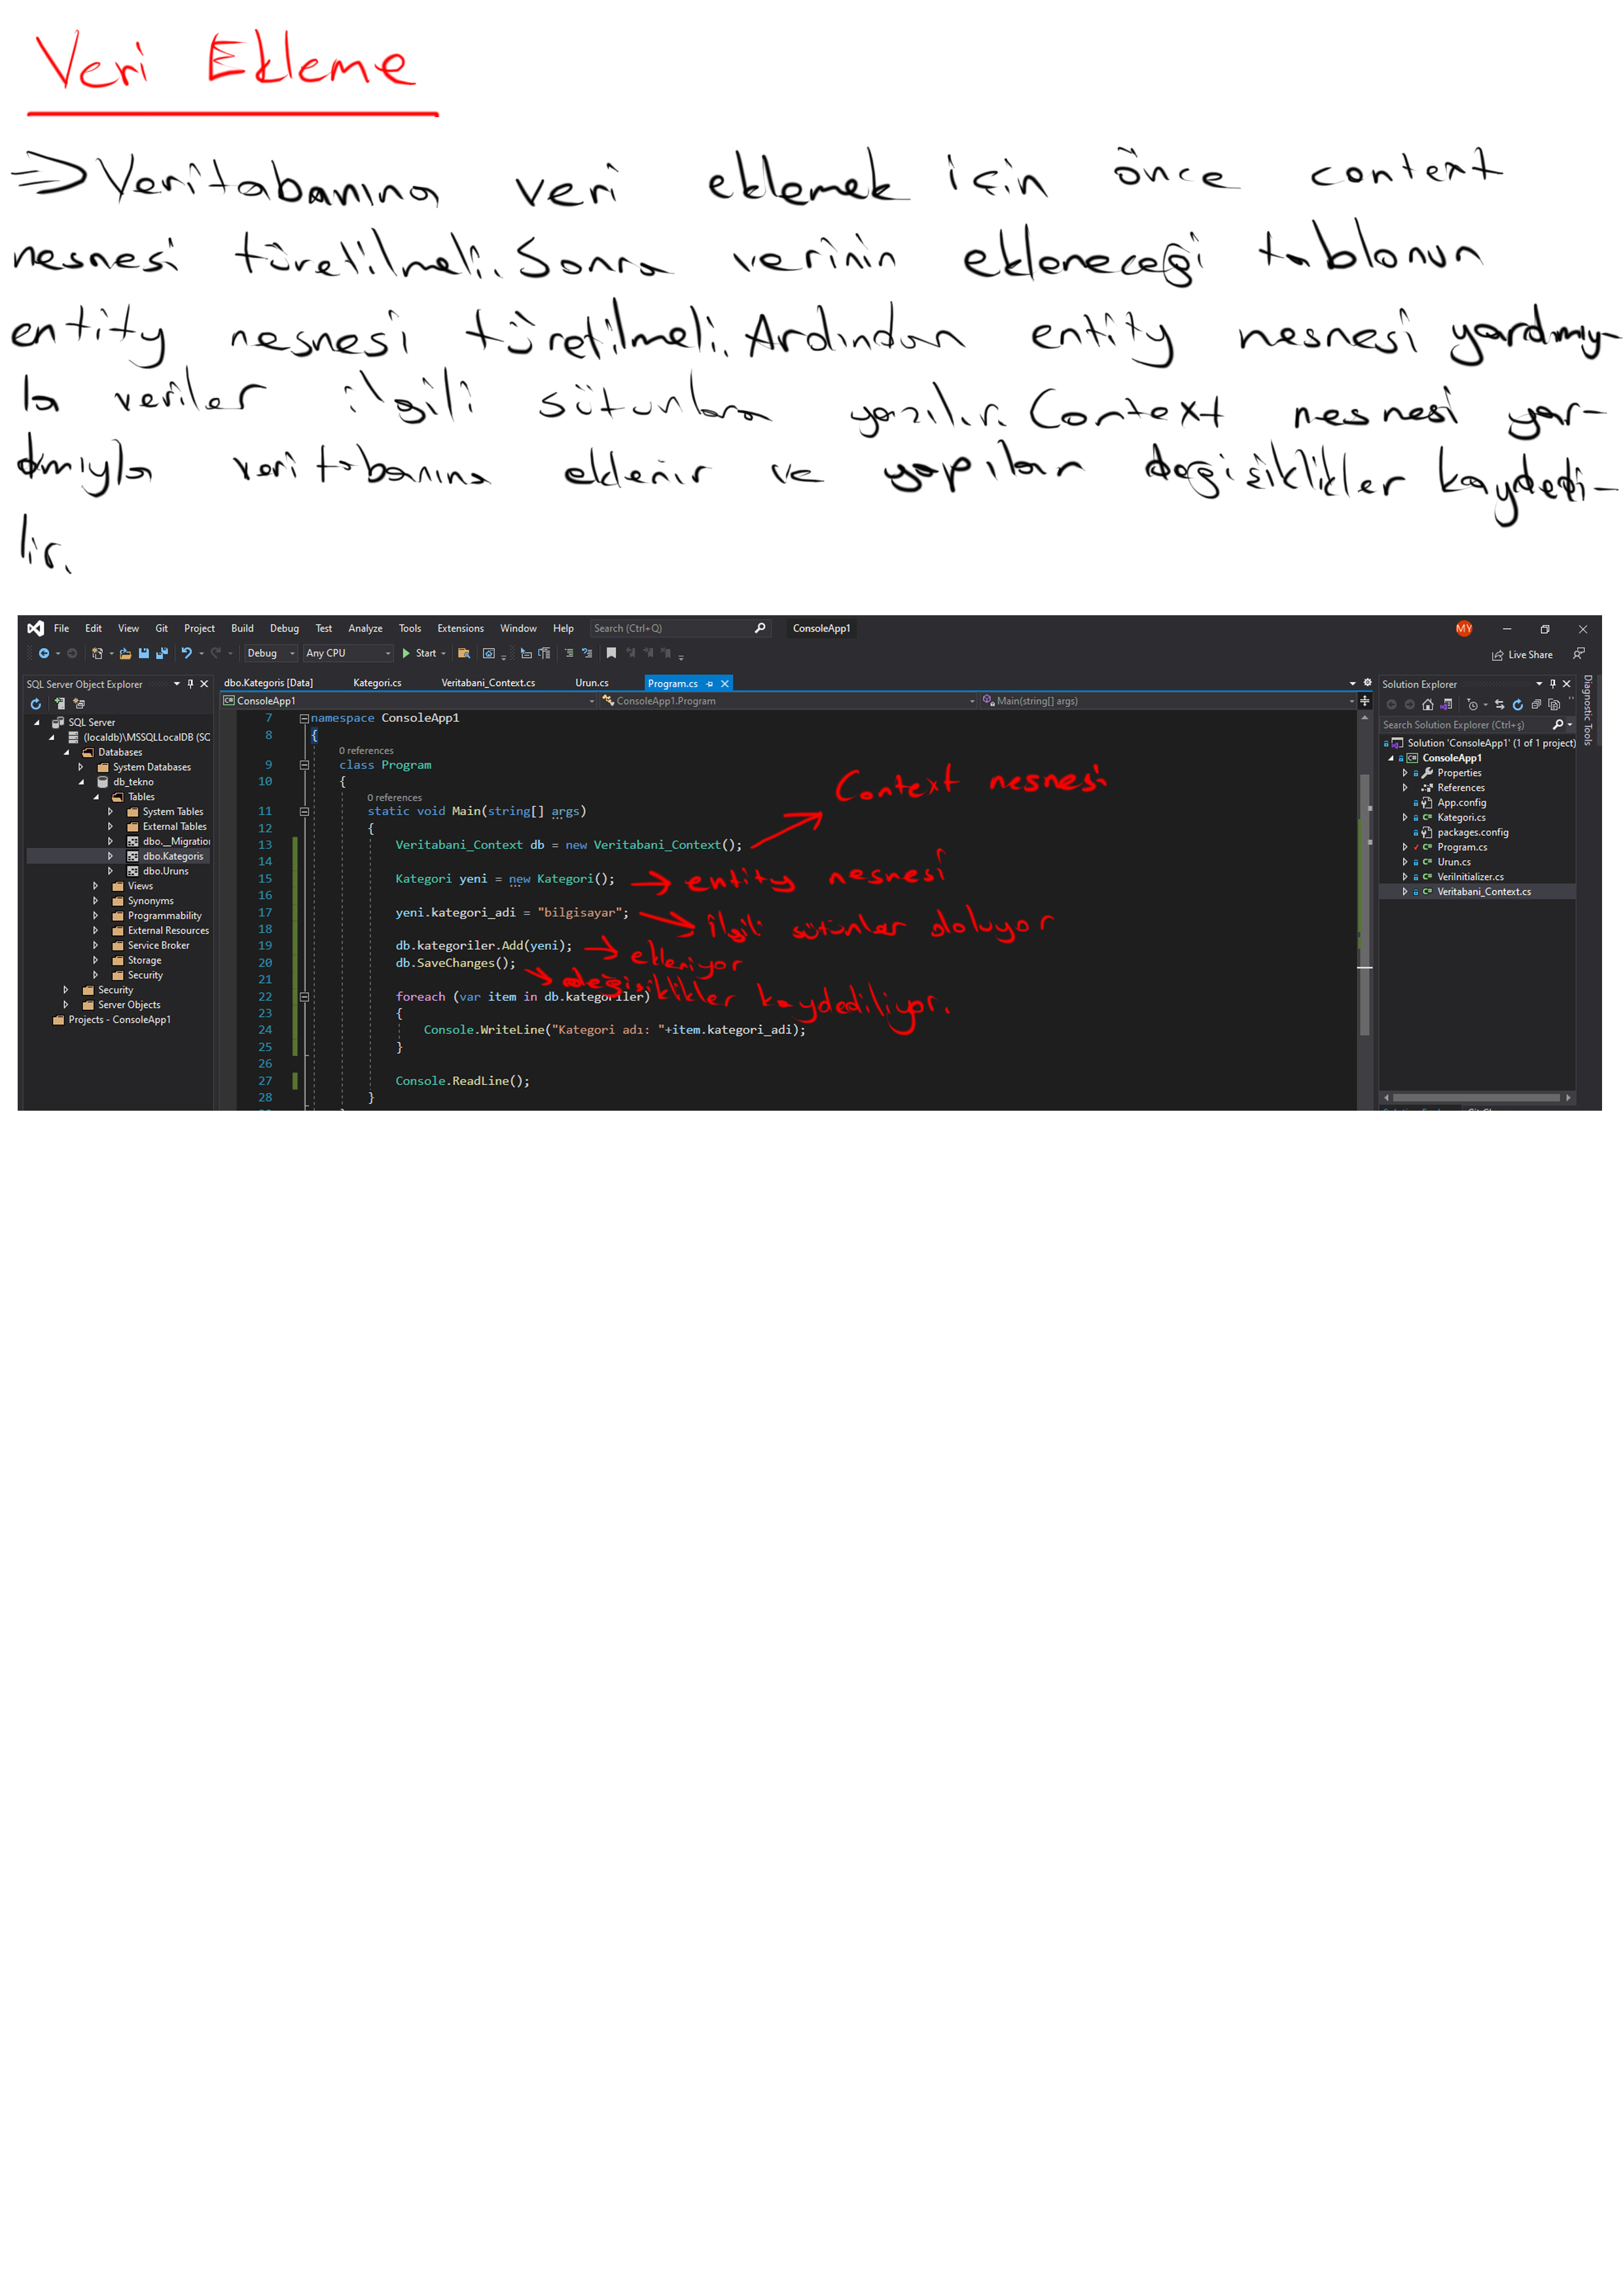 Veri Ekleme
=> Veritabanına veri eklemek için önce context
nesnesi türetilmeli. Sonra verinin ekleneceği tablonun
entity nesnesi türetilmeli. Ardından entity nesnesi yardımıy-
la veriler ilgili sütunlara yazılır. Context nesnesi yar-
dımıyla veritabanına eklenir ve yapılan değişiklikler kaydedi-
lir.
File Edit View Git Project Build Debug Test Analyze Tools Extensions Window Help Search (Ctrl+Q) ConsoleApp1 MY
Debug Any CPU Start Live Share
SQL Server Object Explorer
SQL Server
(localdb)\MSSQLLocalDB (SC
Databases
System Databases
db_tekno
Tables
System Tables
External Tables
dbo.__Migration
dbo.Kategoris
dbo.Uruns
Views
Synonyms
Programmability
External Resources
Service Broker
Storage
Security
Security
Server Objects
Projects - ConsoleApp1
dbo.Kategoris [Data] Kategori.cs Veritabani_Context.cs Urun.cs Program.cs
ConsoleApp1 ConsoleApp1.Program Main(string[] args)
7 namespace ConsoleApp1
8 {
0 references
9 class Program
10 {
0 references
11 static void Main(string[] args)
12 {
13 Veritabani_Context db = new Veritabani_Context(); Context nesnesi
14
15 Kategori yeni = new Kategori(); entity nesnesi
16
17 yeni.kategori_adi = "bilgisayar"; ilgili sütunlar doluyor
18
19 db.kategoriler.Add(yeni); ekleniyor
20 db.SaveChanges(); değişiklikler kaydediliyor.
21
22 foreach (var item in db.kategoriler)
23 {
24 Console.WriteLine("Kategori adı: "+item.kategori_adi);
25 }
26
27 Console.ReadLine();
28 }
Solution Explorer
Search Solution Explorer (Ctrl+ş)
Solution 'ConsoleApp1' (1 of 1 project)
ConsoleApp1
Properties
References
App.config
Kategori.cs
packages.config
Program.cs
Urun.cs
VeriInitializer.cs
Veritabani_Context.cs
Diagnostic Tools